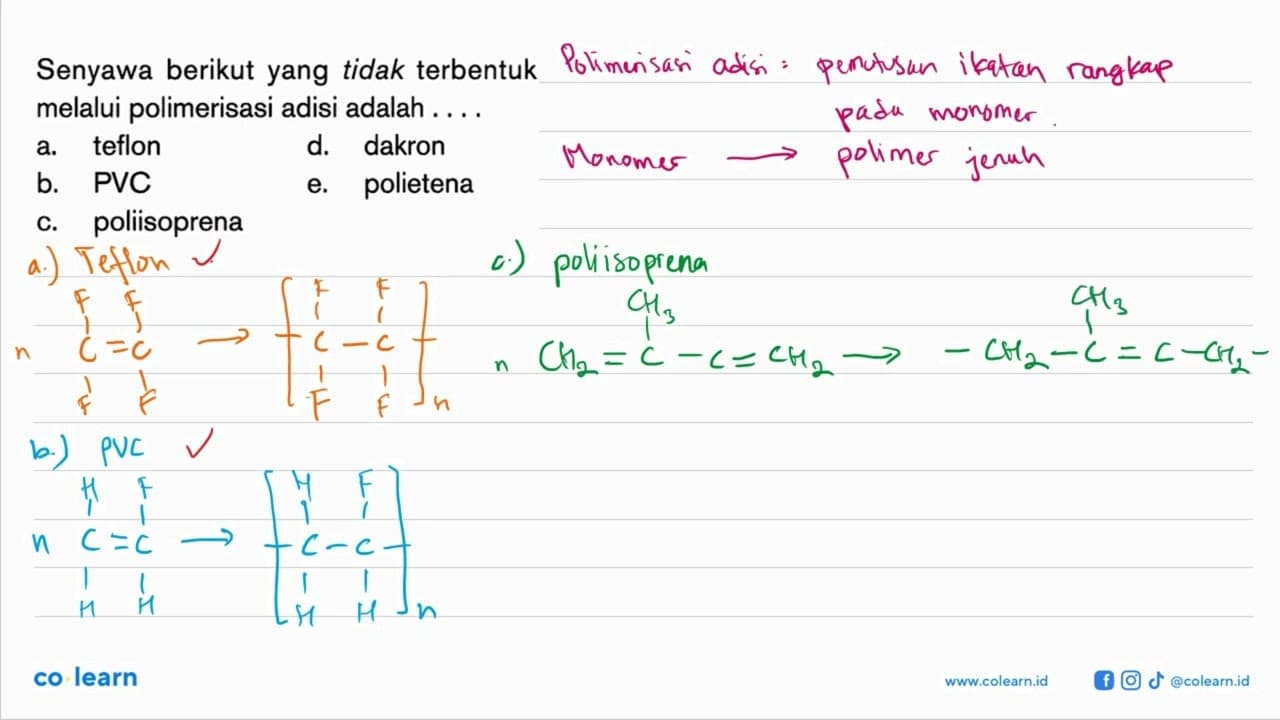 Senyawa berikut yang tidak terbentuk
melalui polimerisasi adisi adalah . . . .
a. teflon
b. PVC
c. poliisoprena
d. dakron
e. polietena
Polimerisasi adisi = pemutusan ikatan rangkap
pada monomer.
Monomer → polimer jenuh
a.) Teflon ✓
F F
n C = C → [ C – C ] n
F F
F F
F F
b.) PVC ✓
H F
n C = C → [ C – C ] n
H H
H F
H H
c.) poliisoprena
CH3 CH3
n CH2 = C – C = CH2 → – CH2 – C = C – CH2 –
co learn
www.colearn.id
@colearn.id